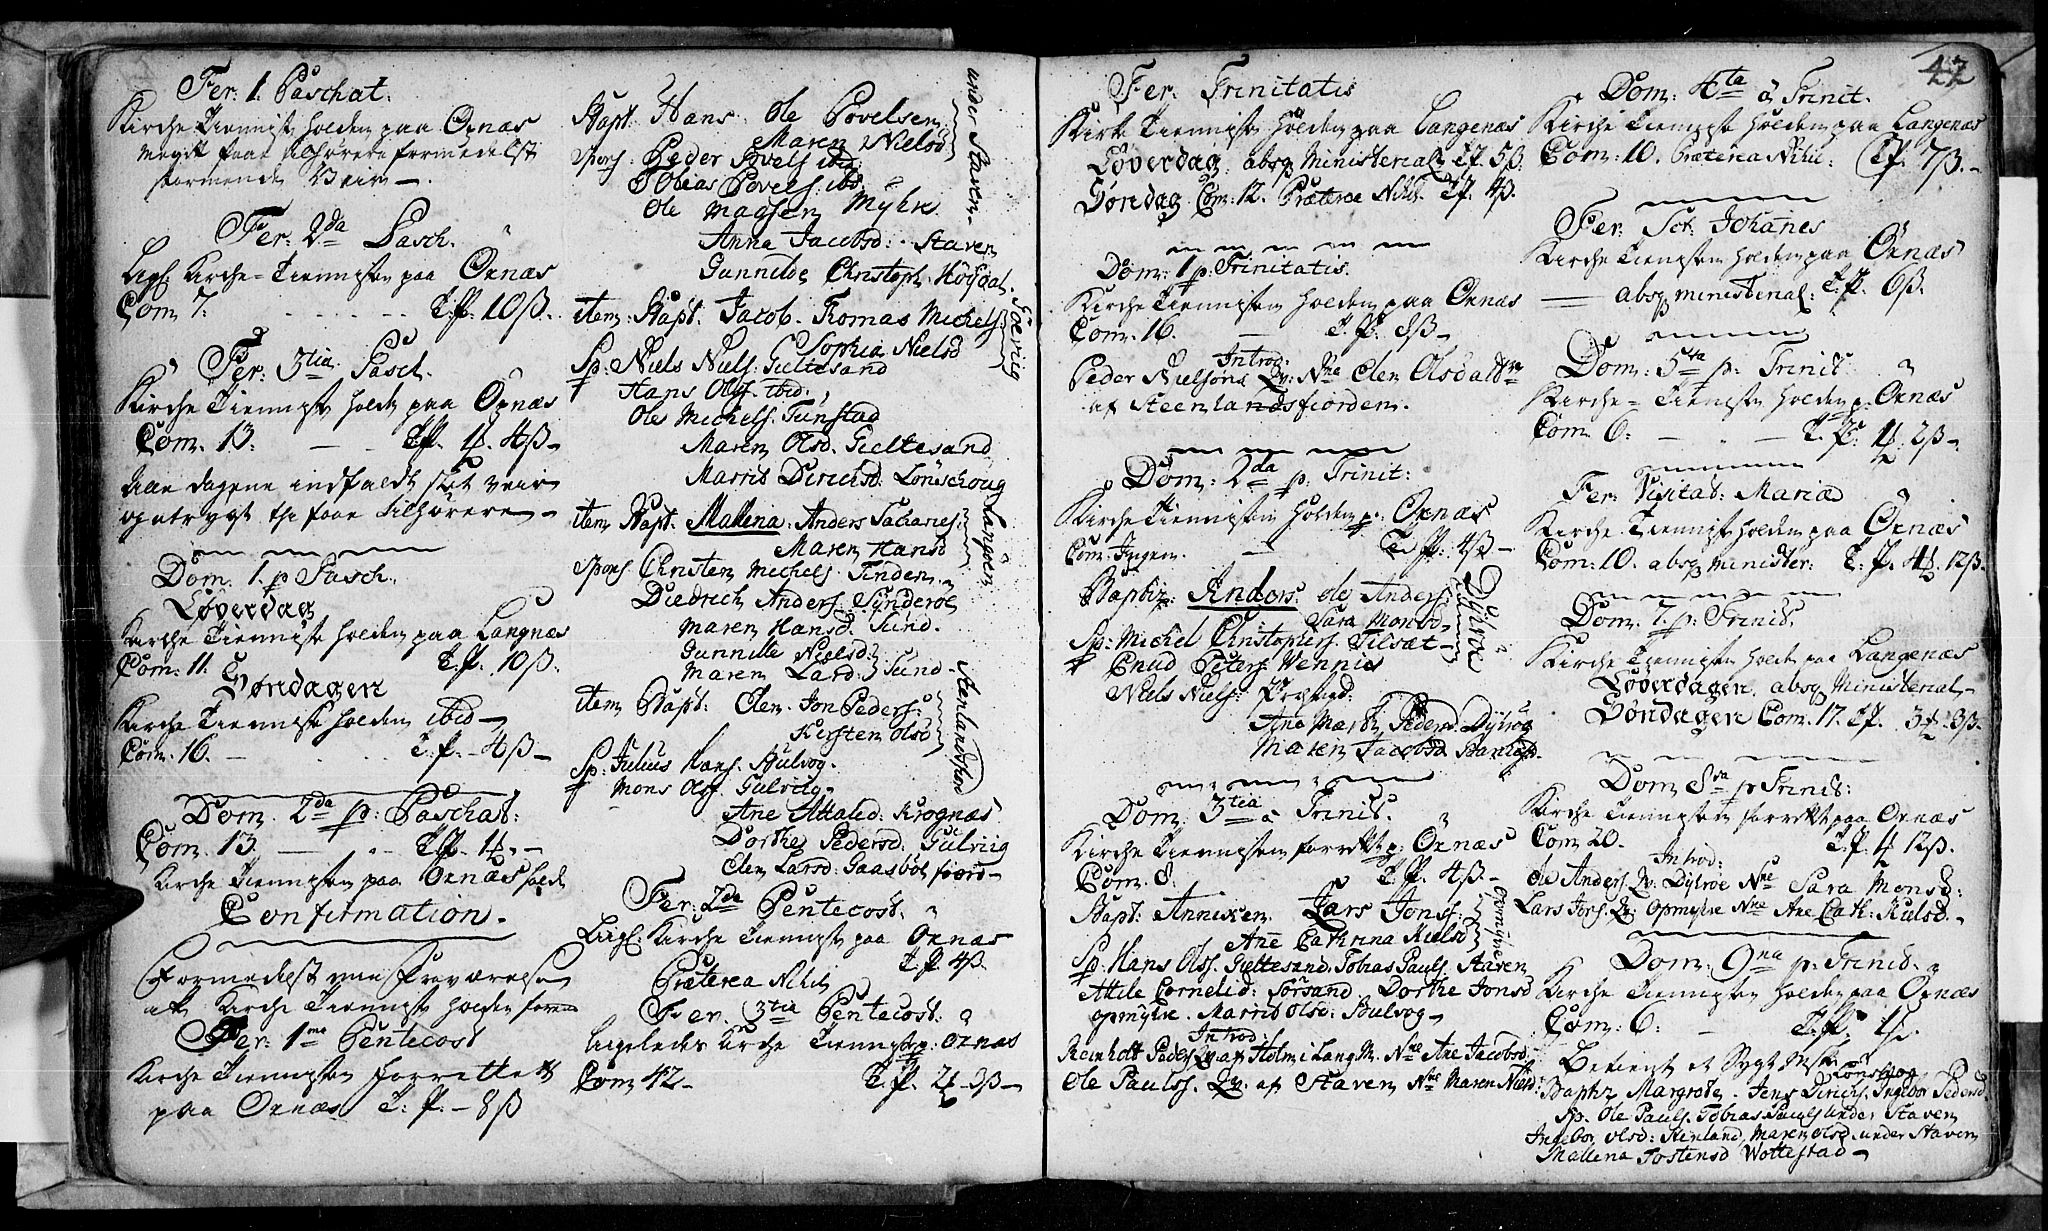 Fer: 1. Paschat:
Kirche Tiennist holden paa Örnæs
megit faae tilhörere formedelst
stormende Veir.
Fer: 2da Pasch.
Ligl. Kirche-Tiennisten paa Örnæs
Com 7. T. P. 10ß.
Fer: 3tia Pasch.
Kirche Tienniste holdt paa Örnæs
Com. 13. T. P. 4ß
Alle dagene indfaldt slet veir
og utrygt thi faae Tilhörere
Dom. 1. p Pasch.
Löverdag
Kirche Tienniste holden paa Langnæs
Com: 11. T. P. 10ß.
Söndagen
Kirche Tienniste holden ibid
Com. 16. T. P. 4ß
Dom. 2da p: Paschat:
Com. 13
Kirche Tiennisten paa Örnæs holdt
Confirmation.
Formedelst min fraværelse
ingen Kirche Tienniste holden
Fer: 1ma Pentecost
Kirche Tiennisten forrettet
paa Örnæs T. P. 8ß
Bapt: Hans. Ole Povelsen
Maren Nielsd
under Staven
Spons. Peder Povels. ibd:
Tobias Povels. ibd.
Ole Magsen Myhre
Anna Jacobsd: Staven
Gunnilde Christoph. Hofsdal.
item. Bapt. Jacob. Tomas Michels.
Sophia Nielsd
Sp: Niels Niels. Gieltesand
Hans Ols. ibid:
Ole Michels. Tunstad
Maren Olsd. Gieltesand
Marrit Dirichsd. Lönschoug
item Bapt. Mallena. Anders Sacaries.
Maren Hansd
Langöen
Spons. Christen Michels. Tinden
Diedrich Anders. Synderöe
Maren Hansd. Sund.
Gunnile Nielsd.
Maren Larsd. Sund
item Bapt: Elen. Jon Peders.
Kirsten Olsd
Steenlandsfior
Sp: Julius Hans. Hulvog.
Mons Ols. Gulviig
Ane Attalid. Krognæs
Dorthe Pedersd. Gulviig
Elen Larsd: Gaasböl fiord
Fer: 2da Pentecost.
Ligl. Kirche Tienniste paa Örnæs
T. P. 4ß
Præterea Nihil
Fer. 3tia Pentecost.
Ligeledes Kirche Tienniste p: Örnæs
Com 42. T. P. 2 3ß
42
Fer. Trinitatis
Kirke Tiennisten holden paa Langenæs
Löverdag. absq Ministerial: T. P. 5ß.
Söndag Com: 12. Præterea Nihil. T. P. 4ß.
Dom: 1 p: Trinitatis.
Kirche Tiennisten holden paa Örnæs
Com. 16. T. P. 8ß
Introd:
Peder Nielsöns Qv: Nne Elen Olsdatter
af Steenlandsfiorden.
Dom: 2da p: Trinit:
Kirche Tiennisten holden p: Örnæs
Com: Ingen. T. P. 4ß
Baptiz: Anders. Ole Anders.
Sara Monsd.
Dyhröe
Sp: Michel Christophers. Tilsæt
Cnud Peters. Vennies
Niels Niels.
Ane Marth Pedersd. Dyhröe
Maren Jacobsd.
Dom: 3tia a Trinit.
Kirche Tiennisten forrettet p: Örnæs
Com. 8. T. P. 4ß
Bapt: Anniken. Lars Jons.
Ane Cathrina Nielsd
Opmyhre
Sp: Hans Ols. Gieltesand. Tobias Pauls. Staven
Attile Cornelid: Sörsand. Dorthe Jonsd
opmyhre. Marrit Olsd: Bulvog
Introd:
Reinholt Peders Qv af Holm i Lang N. Nne Ane Jacobsd
Ole Pauls. Qv. af Staven Nne Maren Nielsd:
Dom: 4ta a Trinit.
Kirche Tienniste holden paa Langenæs
Com: 10. Præterea Nihil: T. P. 7ß.
Fer: Sct. Johanes
Kirche Tiennisten holden paa Örnæs
absq ministerial: T. P. 6ß.
Dom: 5ta p: Trinit.
Kirche-Tienniste holden p: Örnæs
Com. 6. T. P. 2ß
Fer: Visitat: Mariæ
Kirche Tienniste holden paa Örnæs
Com: 10. absq minister: T. P. 4 12ß.
Dom: 7. p: Trinit.
Kirche Tiennisten holden paa Langenæs
Löverdagen. absq Ministerial
Söndagen Com. 17. T. P. 3 8ß.
Dom 8va p Trinit:
Kirche Tiennisten forrettet paa Örnæs
Com 20. T. P. 12ß.
Introd:
Ole Anders. Qv. Dyhröe Nne Sara Monsd:
Lars Jons. Qv: Opmyhre Nne Ane Cath: Nielsd.
Dom: 9na p: Trinit.
Kirche Tiennisten holden paa Örnæs
Com: 6: T. P.
Betient et Sygt
Lönskoug
Baptiz Margrete. Jens Dirichs. Ingebor Pedersd
Sp. Ole Pauls. Tobias Pauls under Staven
Ingebor Olsd: Stenland, Maren Olsd. under Staven
Mallena Tostensd Wottestad